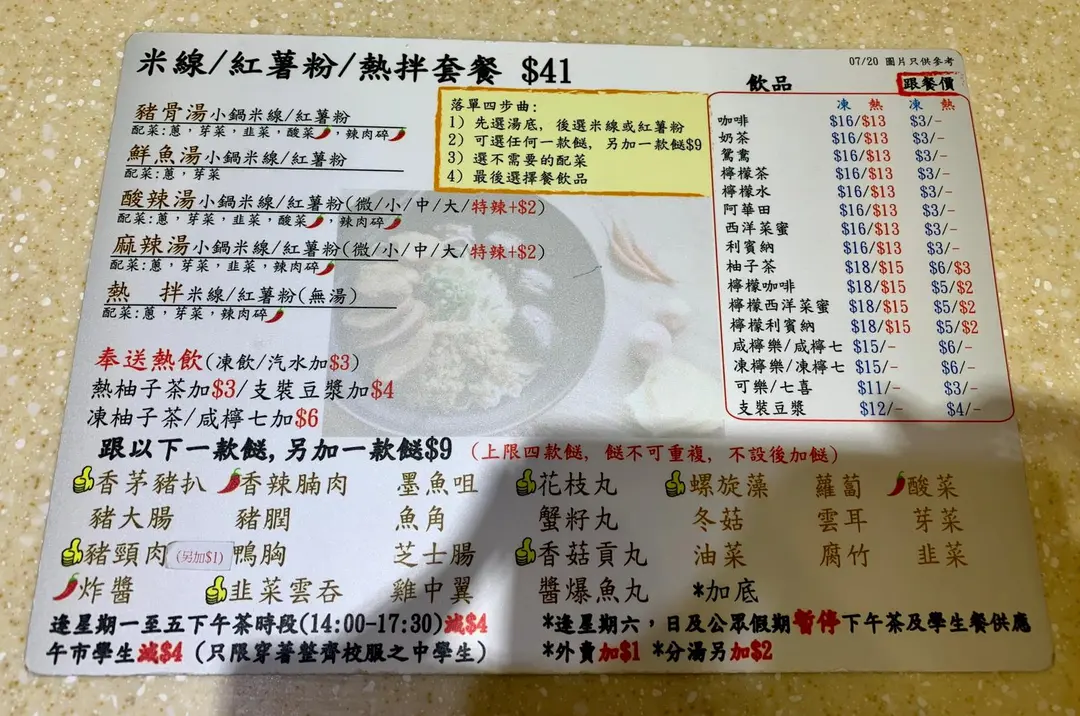 米線/紅薯粉/熱拌套餐 $41
07/20 圖片只供參考
豬骨湯小鍋米線/紅薯粉
配菜:蔥，芽菜，韭菜，酸菜，辣肉碎
鮮魚湯小鍋米線/紅薯粉
配菜:蔥，芽菜
酸辣湯小鍋米線/紅薯粉(微/小/中/大/特辣+$2)
配菜:蔥，芽菜，韭菜，酸菜，辣肉碎
麻辣湯小鍋米線/紅薯粉(微/小/中/大/特辣+$2)
配菜:蔥，芽菜，韭菜，辣肉碎
熱 拌米線/紅薯粉(無湯)
配菜:蔥，芽菜，辣肉碎
落單四步曲:
1) 先選湯底, 後選米線或紅薯粉
2) 可選任何一款餸, 另加一款餸$9
3) 選不需要的配菜
4) 最後選擇餐飲品
飲品 跟餐價
凍 熱 凍 熱
咖啡 $16/$13 $3/-
奶茶 $16/$13 $3/-
鴛鴦 $16/$13 $3/-
檸檬茶 $16/$13 $3/-
檸檬水 $16/$13 $3/-
阿華田 $16/$13 $3/-
西洋菜蜜 $16/$13 $3/-
利賓納 $16/$13 $3/-
柚子茶 $18/$15 $6/$3
檸檬咖啡 $18/$15 $5/$2
檸檬西洋菜蜜 $18/$15 $5/$2
檸檬利賓納 $18/$15 $5/$2
咸檸樂/咸檸七 $15/- $6/-
凍檸樂/凍檸七 $15/- $6/-
可樂/七喜 $11/- $3/-
支裝豆漿 $12/- $4/-
奉送熱飲(凍飲/汽水加$3)
熱柚子茶加$3/支裝豆漿加$4
凍柚子茶/咸檸七加$6
跟以下一款餸, 另加一款餸$9 (上限四款餸, 餸不可重複, 不設後加餸)
香茅豬扒 香辣腩肉 墨魚咀 花枝丸 螺旋藻 蘿蔔 酸菜
豬大腸 豬膶 魚角 蟹籽丸 冬菇 雲耳 芽菜
豬頸肉(另加$1) 鴨胸 芝士腸 香菇貢丸 油菜 腐竹 韭菜
炸醬 韭菜雲吞 雞中翼 醬爆魚丸 *加底
逢星期一至五下午茶時段(14:00-17:30)減$4 *逢星期六，日及公眾假期暫停下午茶及學生餐供應
午市學生減$4 (只限穿著整齊校服之中學生) *外賣加$1 *分湯另加$2